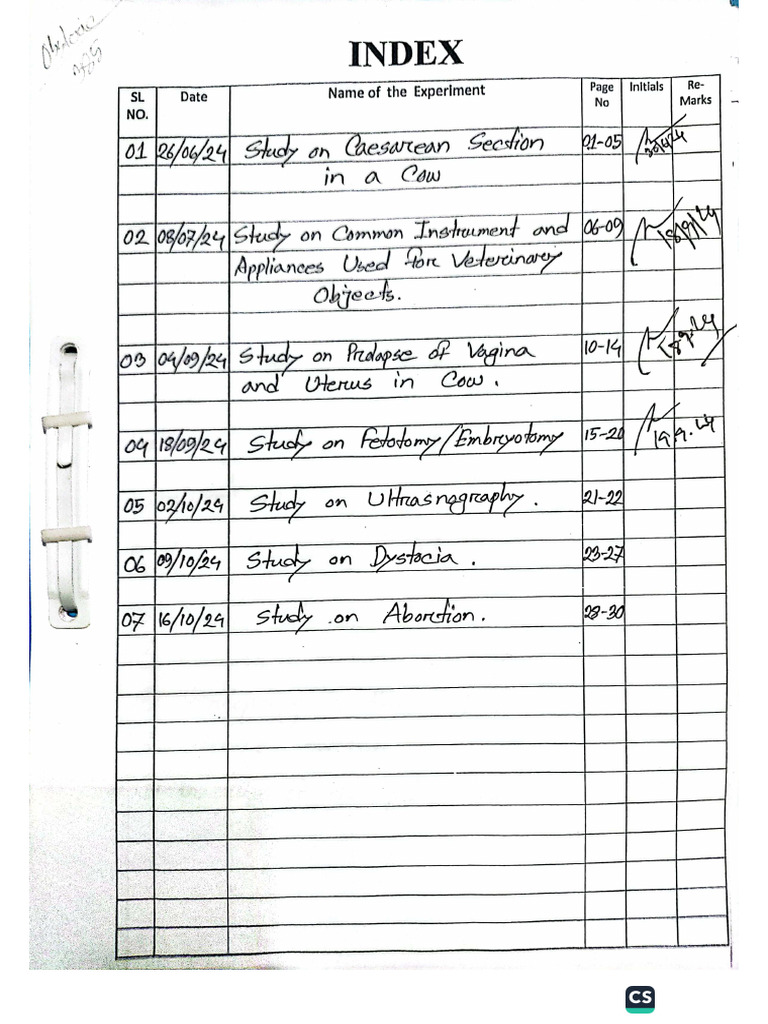 INDEX
SL NO. Date Name of the Experiment Page No Initials Re-Marks
01 26/06/24 Study on Caesarean Section 01-05
in a Cow
02 08/07/24 Study on Common Instrument and 06-09
Appliances Used for Veterinary
Objects.
03 04/09/24 Study on Prolapse of Vagina 10-14
and Uterus in Cow.
04 18/09/24 Study on Fetotomy/Embryotomy 15-20
05 02/10/24 Study on Ultrasnography. 21-22
06 09/10/24 Study on Dystocia. 23-27
07 16/10/24 Study on Abortion. 28-30
CS